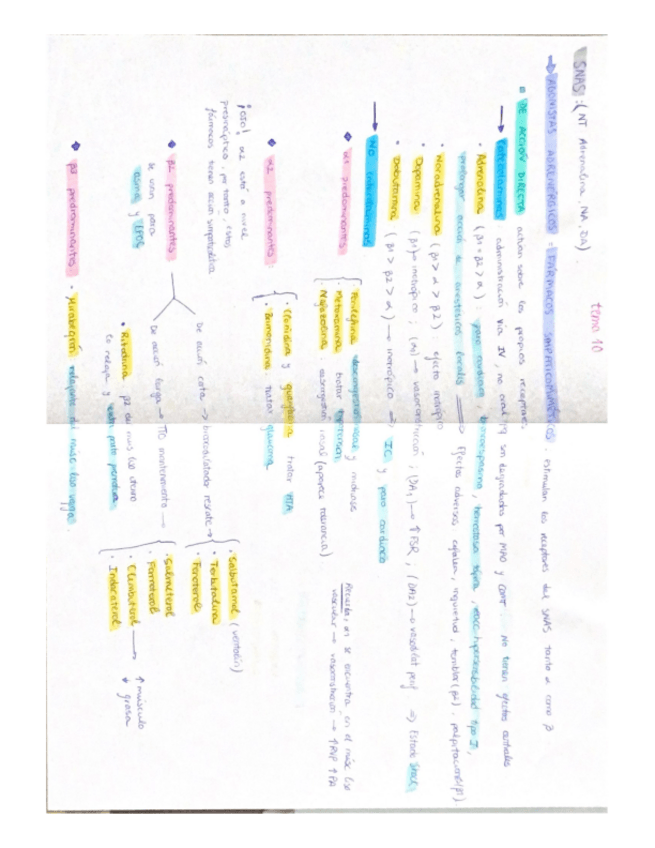 tema 10
SNAS: (NT Adrenalina, NA, DA).
→ AGONISTAS ADRENÉRGICOS = FÁRMACOS SIMPATICOMIMÉTICOS: estimulan los receptores del SNAS tanto α como β
DE ACCIÓN DIRECTA: actúan sobre los propios receptores.
→ Catecolaminas: administración vía IV, no oral pq son degradadas por MAO y COMT. No tienen efectos centrales
• Adrenalina (β1 = β2 > α): paro cardiaco, broncoespasmo, hemostasia tópica, reacc. hipersensibilidad tipo I,
prolongar acción de anestésicos locales ⇒ Efectos adversos: cefalea, inquietud, temblor (β2), palpitaciones (β1)
• Noradrenalina (β1 > α > β2): efecto inotrópico
• Dopamina (β1) → inotrópico; (α1) → vasoconstricción; (DA1) → ↑FSR; (DA2) → vasodilat perif. ⇒ Estado Shock
• Dobutamina (β1 > β2 > α) → inotrópico ⇒ IC y paro cardiaco
→ NO catecolaminas
◆ α1 predominantes
• Fenilefrina: descongestionante y midriasis
• Metoxamina: tratar hipotensión
• Nafazolina: descongestión nasal (aparece tolerancia)
Recuerda, α1 se encuentra en el músc liso
vascular → vasoconstricción → ↑RVP ↑PA
◆ α2 predominantes:
• Clonidina y guanfacina: tratar HTA
• Brimonidina: tratar glaucoma
¡ojo! α2 está a nivel
presináptico, por tanto, estos
fármacos tienen acción simpaticolítica
◆ β2 predominantes
se usan para
asma y EPOC
De acción corta → broncodilatador rescate →
• Salbutamol (ventolín)
• Terbutalina
• Fenoterol
De acción larga → TTO mantenimiento →
• Salmeterol
• Formoterol
• Clembuterol → ↑ músculo
↓ grasa
• Indacaterol
• Ritodrina: β2 del músc liso útero
lo relaja y evita parto prematuro
◆ β3 predominantes • Mirabegrón: relajación del músc. liso vejiga.